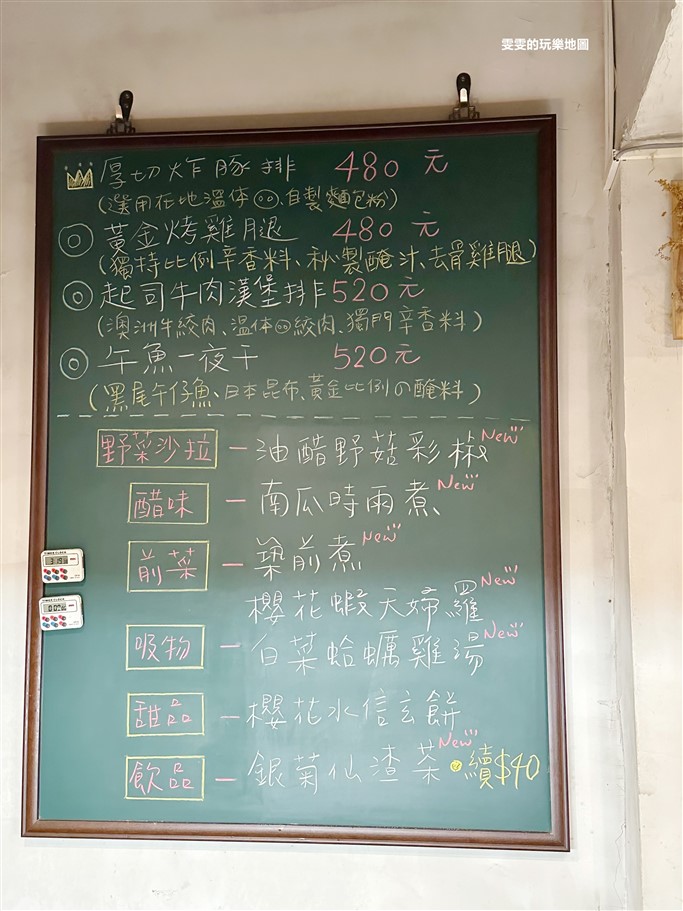 雯雯的玩樂地圖
厚切炸豚排 480元
(選用在地溫体、自製麵包粉)
黃金烤雞腿 480元
(獨特比例辛香料、秘製醃汁、去骨雞腿)
起司牛肉漢堡排 520元
(澳洲牛絞肉、溫体絞肉、獨門辛香料)
午魚一夜干 520元
(黑尾午仔魚、日本昆布、黃金比例の醃料)
野菜沙拉 — 油醋野菇彩椒 New
醋味 — 南瓜時雨煮 New
前菜 — 築前煮 New
櫻花蝦天婦羅 New
吸物 — 白菜蛤蠣雞湯 New
甜品 — 櫻花水信玄餅
飲品 — 銀菊仙渣茶 New 續$40